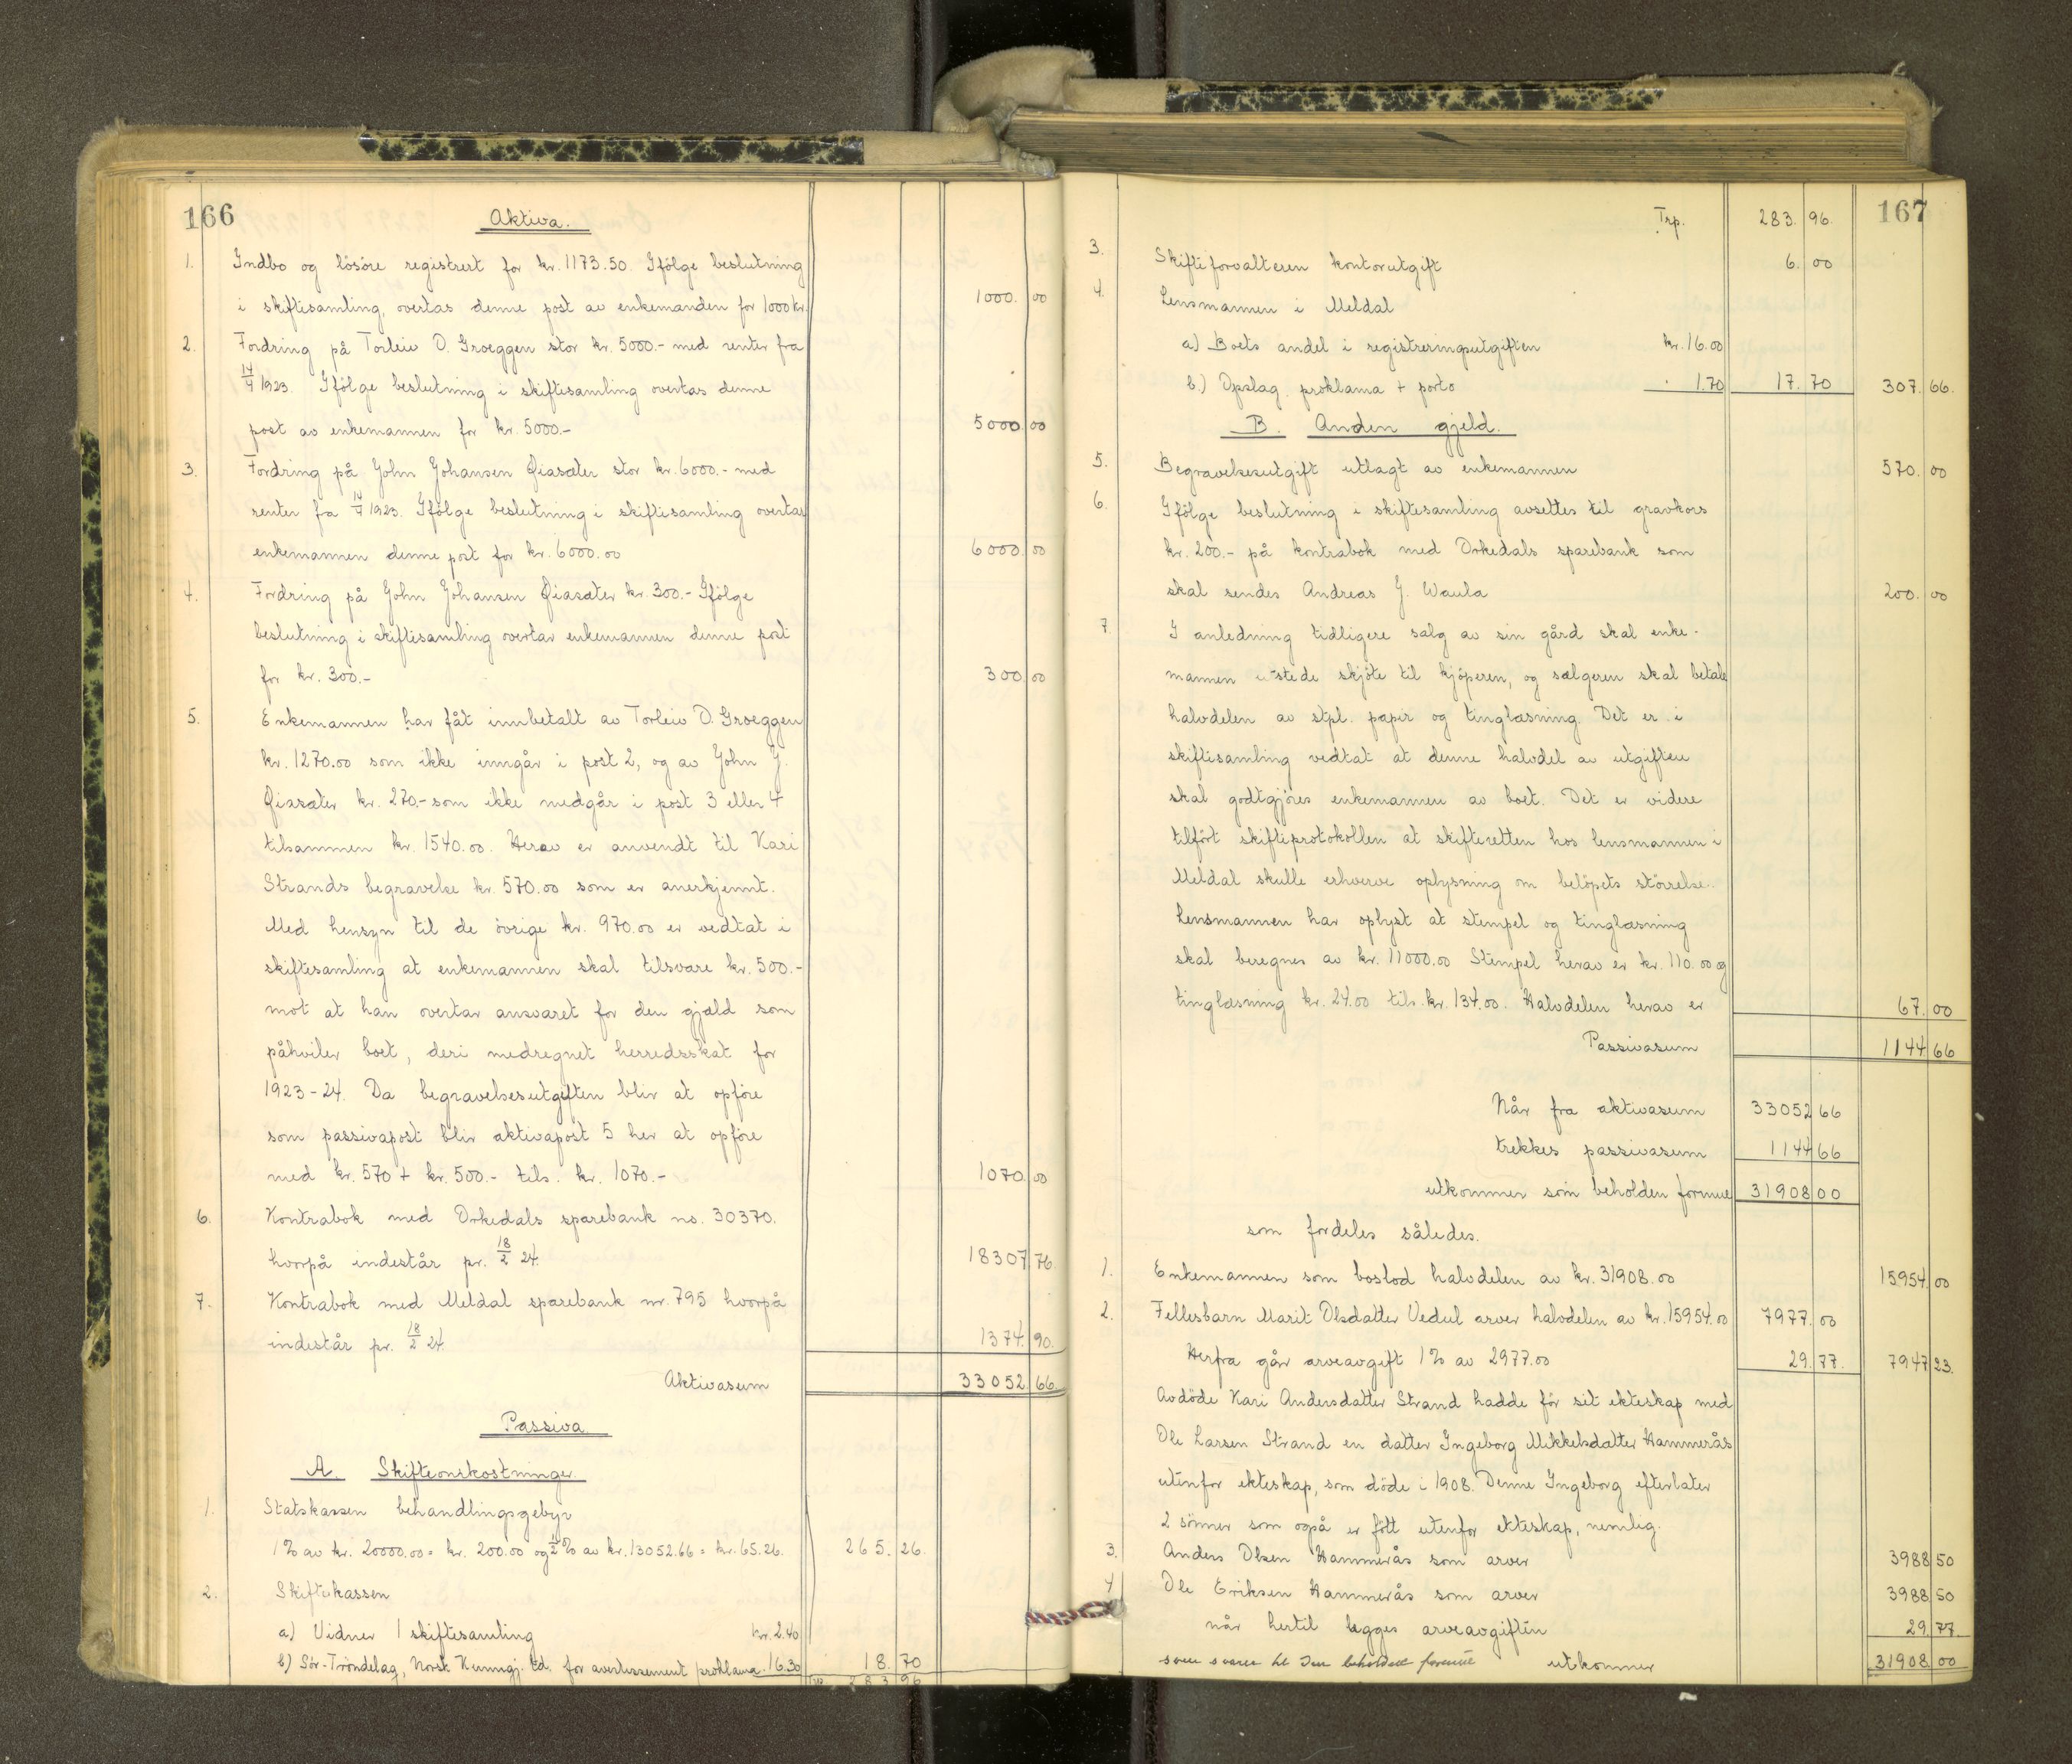 166
Aktiva.
1. Indbo og løsøre registrert for kr. 1173.50. Ifölge beslutning
i skiftesamling, overtas denne post av enkemanden for 1000 kr. 1000. 00
2. Fordring på Torleiv O. Groeggen stor kr. 5000.- med renter fra
14/4 1923. Ifölge beslutning i skiftesamling overtas denne
post av enkemannen for kr. 5000.- 5000 00
3. Fordring på John Johansen Øiasæter stor kr. 6000.- med
renter fra 14/4 1923. Ifölge beslutning i skiftesamling overtar
enkemannen denne post for kr. 6000.00 6000. 00
4. Fordring på John Johansen Øiasæter kr. 300.- Ifölge
beslutning i skiftesamling overtar enkemannen denne post
for kr. 300.- 300. 00
5. Enkemannen har fåt innbetalt av Torleiv O. Groeggen
kr. 1270.00 som ikke inngår i post 2, og av John J.
Øiasæter kr. 270.- som ikke medgår i post 3 eller 4
tilsammen kr. 1540.00. Herav er anvendt til Kari
Strands begravelse kr. 570.00 som er anerkjennt.
Med hensyn til de övrige kr. 970.00 er vedtat i
skiftesamling at enkemannen skal tilsvare kr. 500.-
mot at han overtar ansvaret for den gjæld som
påhviler boet, deri medregnet herredsskat for
1923-24. Da begravelsesutgiften blir at opføre
som passivapost blir aktivapost 5 her at opføre
med kr. 570 + kr. 500.- tils. kr. 1070.- 1070. 00
6. Kontrabok med Orkedals sparebank no. 30370.
hvorpå indestår pr. 18/2 24. 18307 76.
7. Kontrabok med Meldal sparebank nr. 795 hvorpå
indestår pr. 18/2 24. 1374. 90.
Aktivasum 33052 66
Passiva
A. Skifteomkostninger
1. Statskassen behandlingsgebyr
1% av kr. 20000.00 = kr. 200.00 og 1/2 % av kr. 13052.66 = kr. 65.26. 265. 26.
2. Skiftekassen
a) Vidner 1 skiftesamling kr. 2.40
b) Sör-Tröndelag, Norsk Kunngj. tid. for avertissement proklama. 16.30 18. 70
283 96
167
Trp. 283. 96.
3. Skifteforvalteren kontorutgift 6. 00
4. Lensmannen i Meldal
a) Boets andel i registreringsutgiften kr. 16.00
b.) Opslag proklama + porto 1.70 17. 70 307. 66.
B. Anden gjeld.
5. Begravelsesutgift utlagt av enkemannen 570. 00
6. Ifölge beslutning i skiftesamling avsettes til gravkors
kr. 200.- på kontrabok med Orkedals sparebank som
skal sendes Andreas J. Waula 200. 00
7. I anledning tidligere salg av sin gård skal enke-
mannen utstede skjöte til kjöperen, og sælgeren skal betale
halvdelen av stpl. papir og tinglæsning. Det er i
skiftesamling vedtat at denne halvdel av utgiften
skal godtgjöres enkemannen av boet. Det er videre
tilfört skifteprotokollen at skifteretten hos lensmannen i
Meldal skulle erhverve oplysning om belöpets störrelse.
Lensmannen har oplyst at stempel og tinglæsning
skal beregnes av kr. 11000.00 Stempel herav er kr. 110.00 og
tinglæsning kr. 24.00 tils. kr. 134.00. Halvdelen herav er 67. 00
Passivasum 1144 66
Når fra aktivasum 33052 66
trekkes passivasum 1144 66
utkommer som beholden formue 31908 00
som fordeles således.
1. Enkemannen som boslod halvdelen av kr. 31908.00 15954 00
2. Fellesbarn Marit Olsdatter Vedul arver halvdelen av kr. 15954.00 7977. 00
Herfra går arveavgift 1% av 2977.00 29. 77. 7947 23.
Avdöde Kari Andersdatter Strand hadde för sit ekteskap med
Ole Larsen Strand en datter Ingeborg Mikkelsdatter Hammerås
utenfor ekteskap, som döde i 1908. Denne Ingeborg efterlater
2 sönner som også er födt utenfor ekteskap, nemlig.
3. Anders Olsen Hammerås som arver 3988 50
4 Ole Eriksen Hammerås som arver 3988 50
når hertil legges arveavgiften 29. 77.
som svarer til den beholdne formue utkommer 31908 00